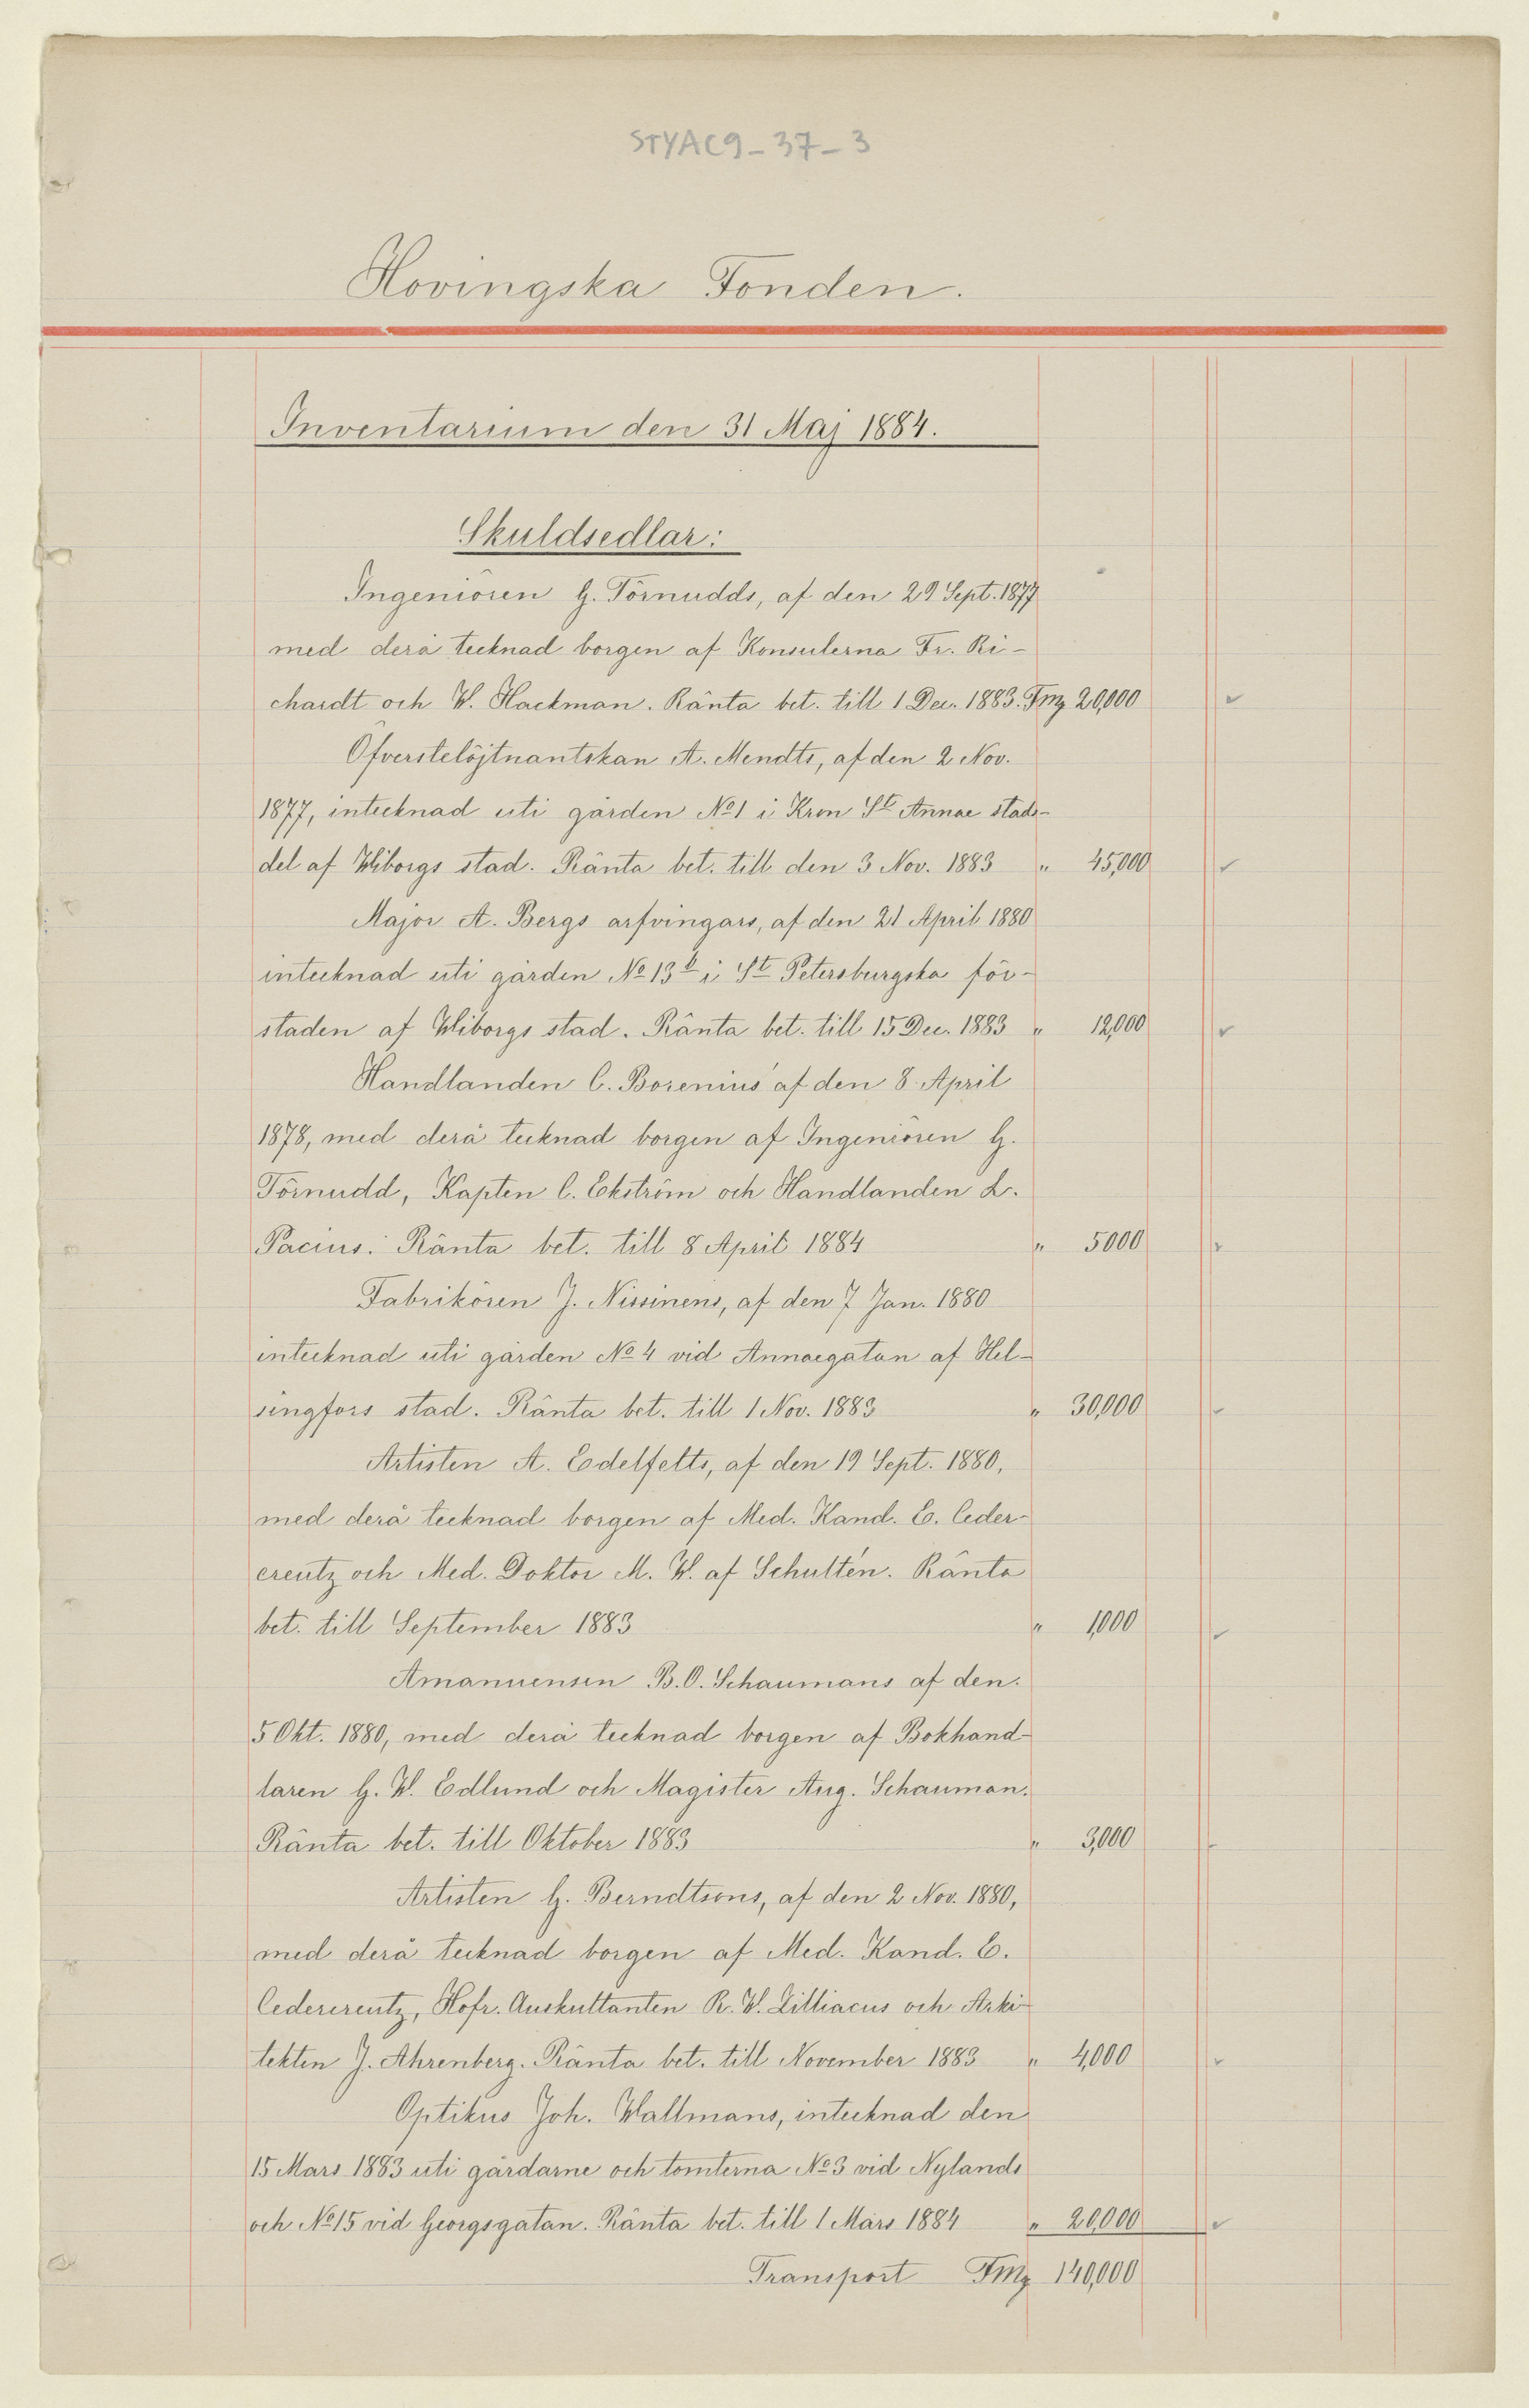 STYAC9-37-3
Hovingska Fonden.
Inventarium den 31 Maj 1884.
Skuldsedlar:
Ingeniören G. Törnudds, af den 29 Sept. 1877
med derå tecknad borgen af Konsulerna Fr. Ri-
chardt och W. Hackman. Ränta bet. till 1 Dec. 1883. Fmg 20,000
Öfverstelöjtnantskan A. Mendts, af den 2 Nov.
1877, intecknad uti gården No 1 i Kron St Annae stads-
del af Wiborgs stad. Ränta bet. till den 3 Nov. 1883 " 45,000
Major A. Bergs arfvingars, af den 21 April 1880
intecknad uti gården No 13 b i St Petersburgska för-
staden af Wiborgs stad. Ränta bet. till 15 Dec. 1883 " 12,000
Handlanden C. Borenius af den 8 April
1878, med derå tecknad borgen af Ingeniören G.
Törnudd, Kapten C. Ekström och Handlanden L.
Pacius. Ränta bet. till 8 April 1884 " 5000
Fabrikören J. Nissinens, af den 7 Jan. 1880
intecknad uti gården No 4 vid Annaegatan af Hel-
singfors stad. Ränta bet. till 1 Nov. 1883 " 30,000
Artisten A. Edelfelts, af den 19 Sept. 1880,
med derå tecknad borgen af Med. Kand. E. Ceder-
creutz och Med. Doktor M. W. af Schultén. Ränta
bet. till September 1883 " 1,000
Amanuensen B. O. Schaumans af den
5 Okt. 1880, med derå tecknad borgen af Bokhand-
laren G. W. Edlund och Magister Aug. Schauman.
Ränta bet. till Oktober 1883 " 3,000
Artisten G. Berndtsons, af den 2 Nov. 1880,
med derå tecknad borgen af Med. Kand. E.
Cedercreutz, Hofr. Auskultanten R. W. Lilliacus och Arki-
tekten J. Ahrenberg. Ränta bet. till November 1883 " 4,000
Optikus Joh. Wallmans, intecknad den
15 Mars 1883 uti gårdarne och tomterna No 3 vid Nylands
och No 15 vid Georgsgatan. Ränta bet. till 1 Mars 1884 " 20,000
Transport Fmg 140,000